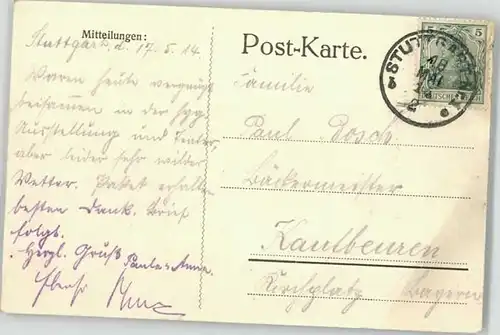 Mitteilungen:
Post-Karte.
Stuttgart, d. 17.5.14.
Waren heute vergnügt
beisammen in der Hyg.
Ausstellung und
aber leider sehr wilder
Wetter. Paket erhalten
besten Dank. Brief
folgt.
Herzl. Gruß Paula u. Anna
Ebenso
Familie
Paul Dosch
Bäckermeister
Kaufbeuren
Kirchplatz Bayern
STUTTGART
5 5
DEUTSCHES REICH